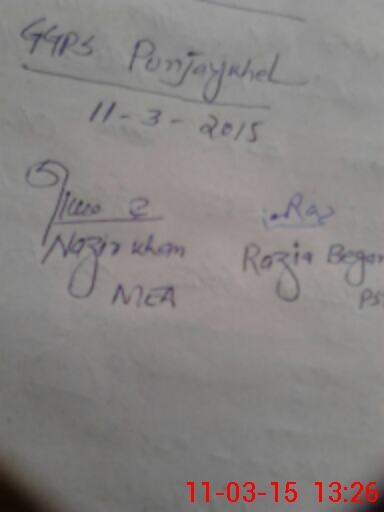 GGPS Punjaykhel
11-3-2015
Raz
Nazir khan
Razia Began
MEA
PS
11-03-15 13:26